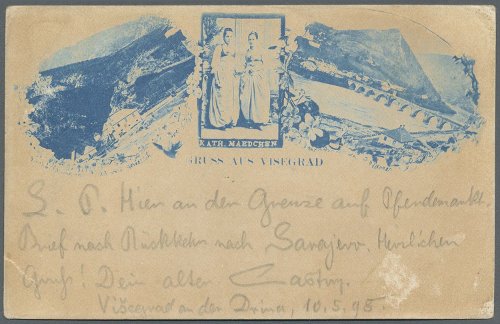 KATH. MAEDCHEN
GRUSS AUS VISEGRAD
L. P. Hier an der Grenze auf Pferdemarkt.
Brief nach Rückkehr nach Sarajevo. Herzlichen
Gruß! Dein alter
Višegrad an der Drina, 10.5.95.